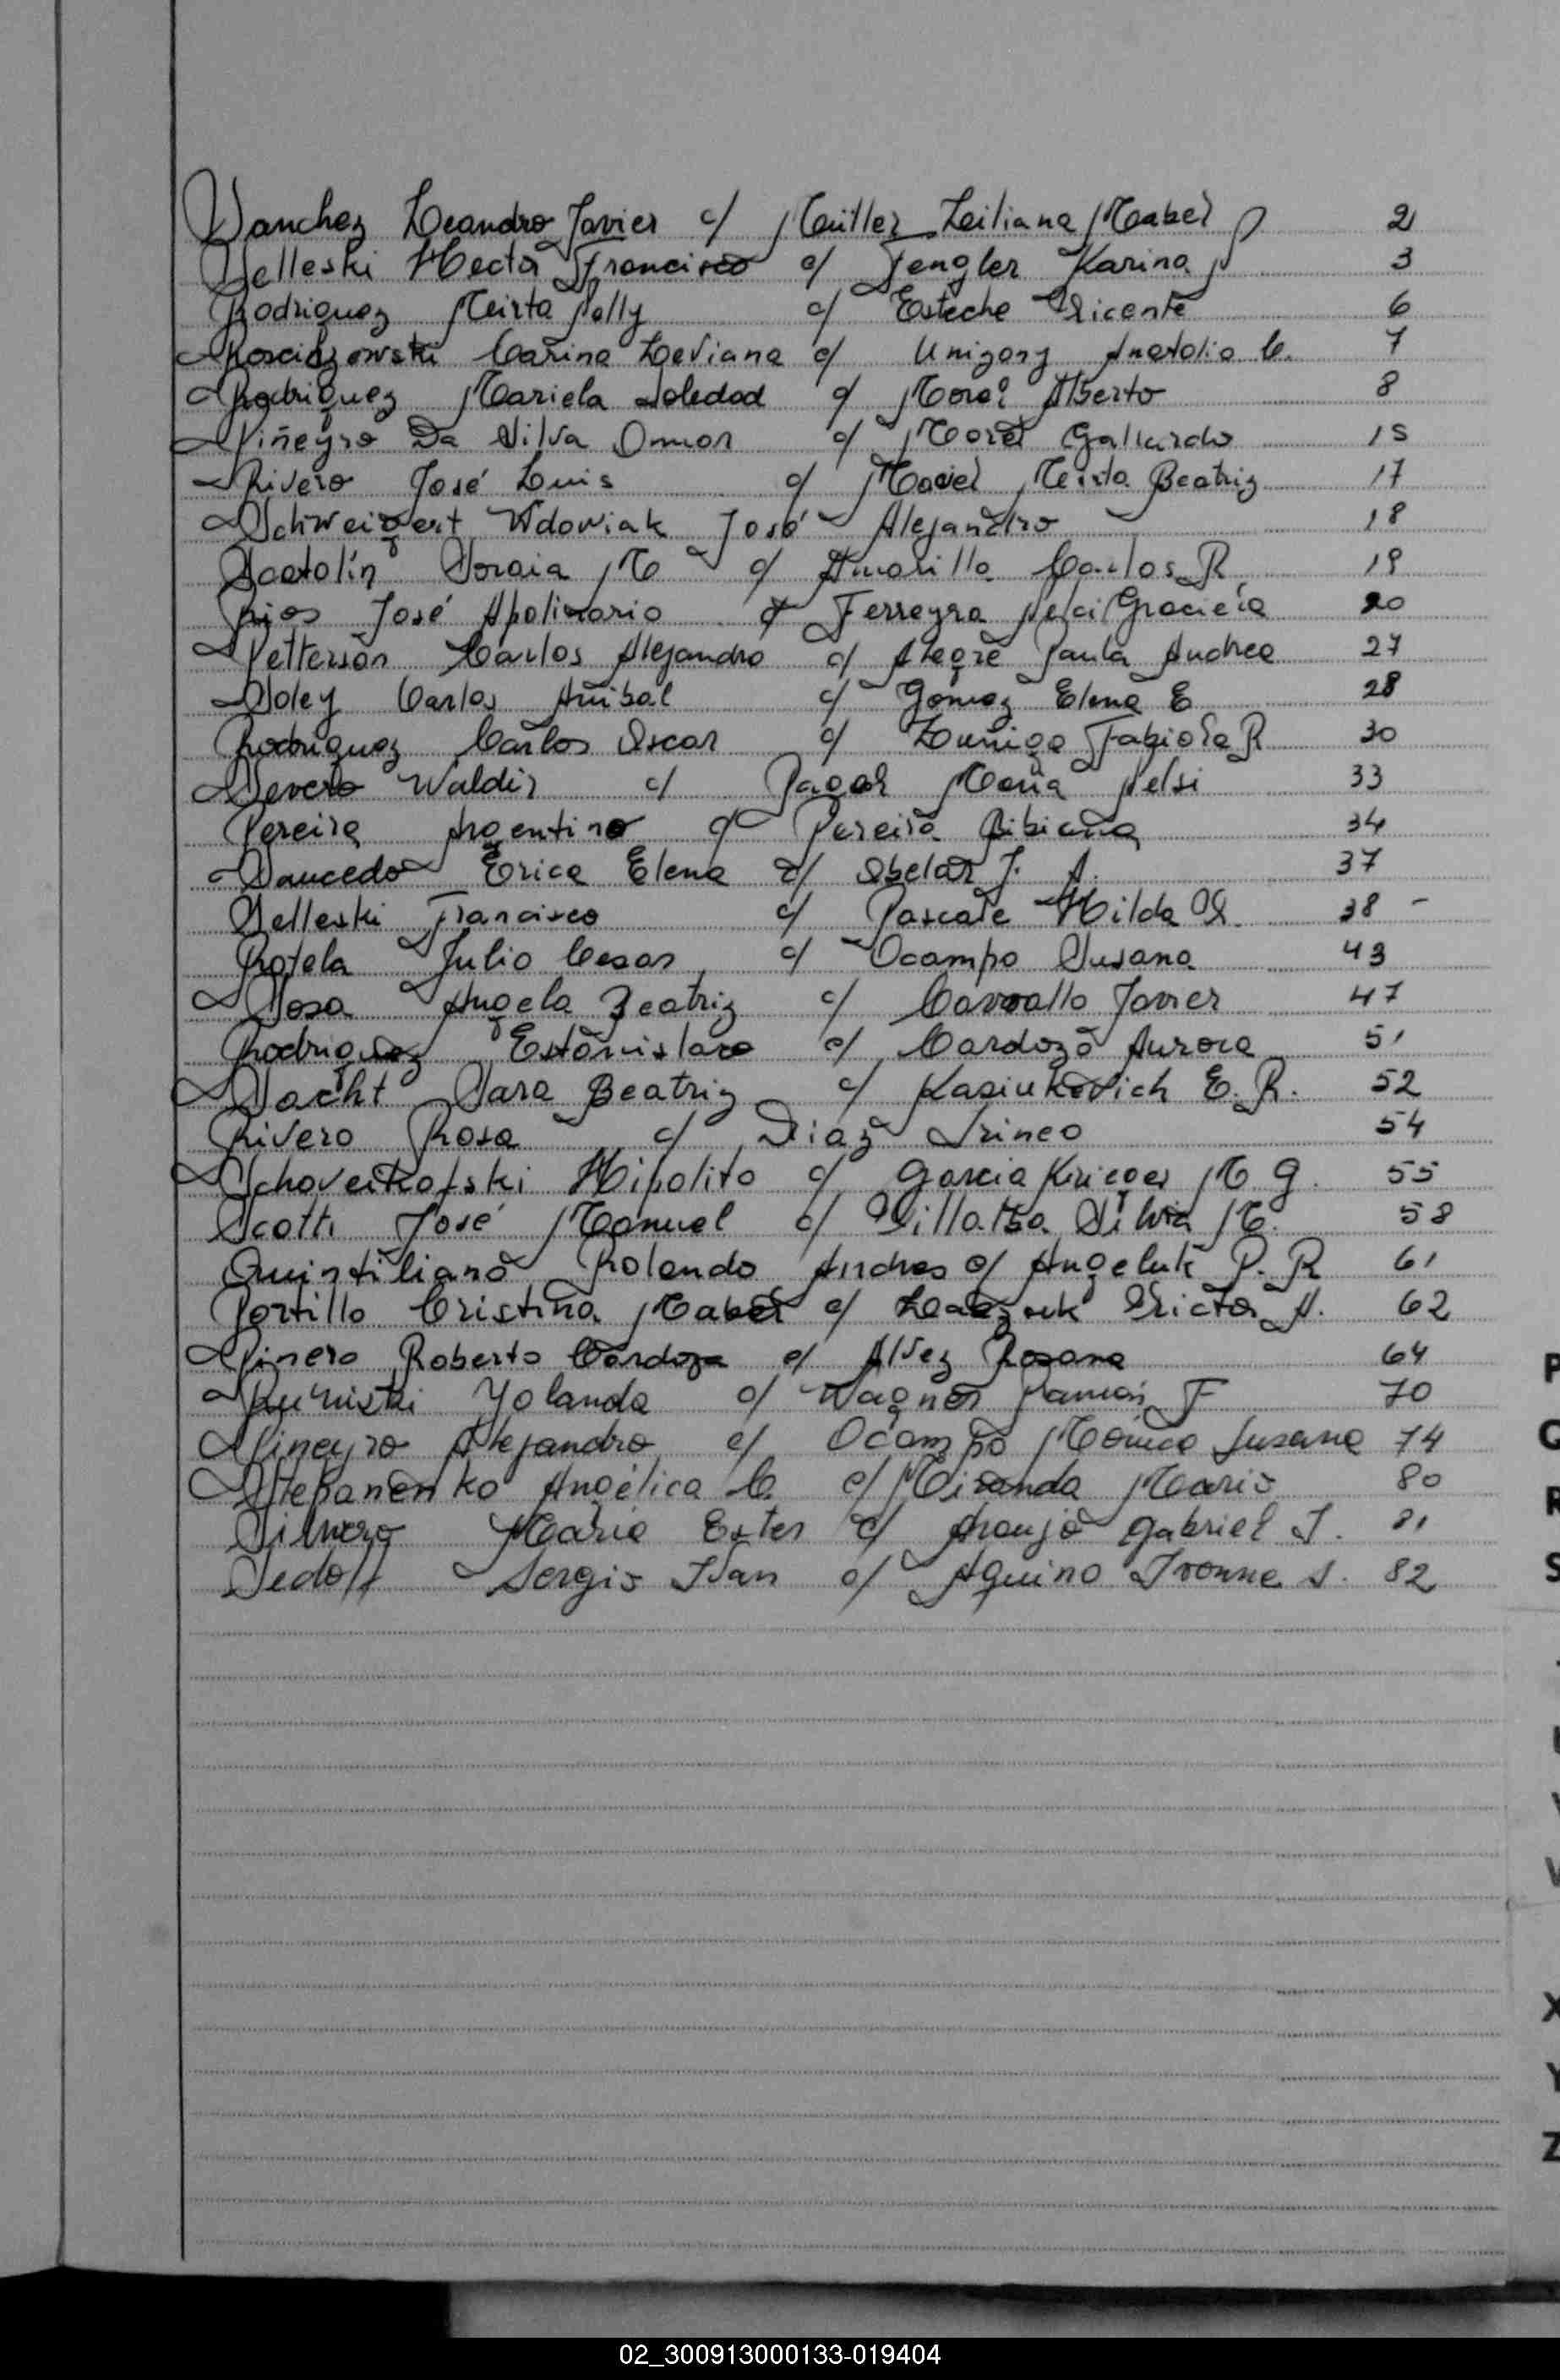 Sanchez Leandro Javier c/ Müller Liliana Mabel 2
Selleski Hector Francisco c/ Tengler Karina 3
Rodriguez Mirta Nelly c/ Esteche Vicente 6
Carina Liviana c/ Anatolio C. 7
Rodriguez Mariela Soledad c/ Moral Alberto 8
Piñeyro Da Silva Omar c/ Gallardo 15
Rivero José Luis c/ Maciel Mirta Beatriz 17
Schweigert Wdowiak José Alejandro 18
Soraia M c/ Amarilla Carlos R. 19
Rios José Apolinario c/ Ferreyra Nelci Graciela 20
Petterson Carlos Alejandro c/ Alegre Paula Andrea 27
Soley Carlos Anibal c/ Gómez Elena E 28
Rodriguez Carlos Oscar c/ Zuñiga Fabiola R 30
Severo Waldir c/ Maria Nelsi 33
Pereira Argentino c/ Pereira Bibiana 34
Saucedo Erica Elena c/ Abelar J. A. 37
Selleski Francisco c/ Pascale Hilda 38 -
Rotela Julio Cesar c/ Ocampo Susana 43
Sosa Angela Beatriz c/ Carvallo Javier 47
Rodriguez Estanislao c/ Cardozo Aurora 51
Sacht Sara Beatriz c/ Kasiukovich E. R. 52
Rivero Rosa c/ Diaz Irineo 54
Hipolito c/ Garcia M. G. 55
Scotti José Manuel c/ Villalba Silvia M. 58
Quintiliano Rolando Andres c/ Angeluk P. R 61
Portillo Cristina Mabel c/ Victor A. 62
Pinero Roberto Cardoza c/ Alvez Rosana 64
Yolanda c/ Wagner Ramón F 70
Pineyro Alejandro c/ Ocampo Mónica Susana 74
Stepanenko Angélica C. c/ Miranda Mario 80
Silvero Maria Ester c/ Araujo Gabriel J. 81
Sedoff Sergio Ivan c/ Aquino Ivonne S. 82
P
Q
R
S
X
Y
Z
02_300913000133-019404